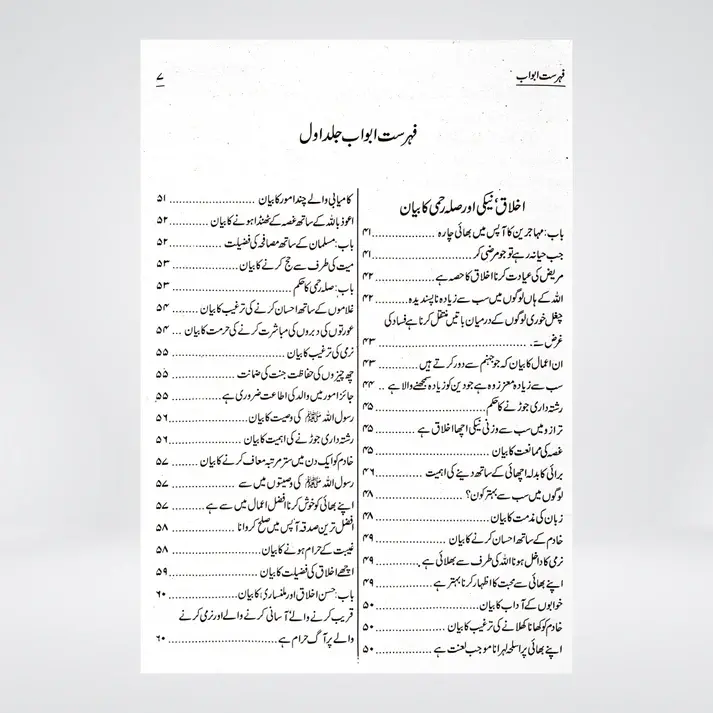 فہرست ابواب
۷
فہرست ابواب جلد اول
اخلاق، نیکی اور صلہ رحمی کا بیان
باب: مہاجرین کا آپس میں بھائی چارہ ................ ۴۱
جب حیا نہ رہے تو جو مرضی کر ................ ۴۱
مریض کی عیادت کرنا اخلاق کا حصہ ہے ................ ۴۲
اللہ کے ہاں لوگوں میں سب سے زیادہ ناپسندیدہ ........ ۴۲
چغل خوری لوگوں کے درمیان باتیں منتقل کرنا ہے فساد کی
غرض سے ................ ۴۳
ان اعمال کا بیان کہ جو جہنم سے دور کرتے ہیں ........ ۴۳
سب سے زیادہ معزز وہ ہے جو دین کو زیادہ سمجھنے والا ہے .. ۴۴
رشتہ داری جوڑنے کا حکم ................ ۴۵
ترازو میں سب سے وزنی نیکی اچھا اخلاق ہے ........ ۴۵
غصہ کی ممانعت کا بیان ................ ۴۵
برائی کا بدلہ اچھائی کے ساتھ دینے کی اہمیت ........ ۴۶
لوگوں میں سب سے بہتر کون؟ ................ ۴۸
زبان کی مذمت کا بیان ................ ۴۸
خادم کے ساتھ احسان کرنے کا بیان ................ ۴۹
نرمی کا داخل ہونا اللہ کی طرف سے بھلائی ہے ........ ۴۹
اپنے بھائی سے محبت کا اظہار کرنا بہتر ہے ........ ۴۹
خوابوں کے آداب کا بیان ................ ۵۰
خادم کو کھانا کھلانے کی ترغیب کا بیان ........ ۵۰
اپنے بھائی پر اسلحہ لہرانا موجب لعنت ہے ........ ۵۰
کامیابی والے چند امور کا بیان ................ ۵۱
اعوذ باللہ کے ساتھ غصہ کے ٹھنڈا ہونے کا بیان ........ ۵۲
باب: مسلمان کے ساتھ مصافحہ کی فضیلت ........ ۵۲
میت کی طرف سے حج کرنے کا بیان ................ ۵۳
باب: صلہ رحمی کا حکم ................ ۵۳
غلاموں کے ساتھ احسان کرنے کی ترغیب کا بیان ........ ۵۴
عورتوں کی دبروں کی مباشرت کرنے کی حرمت کا بیان ... ۵۴
نرمی کی ترغیب کا بیان ................ ۵۵
چھ چیزوں کی حفاظت جنت کی ضمانت ................ ۵۵
جائز امور میں والد کی اطاعت ضروری ہے ........ ۵۵
رسول اللہ ﷺ کی وصیت کا بیان ................ ۵۶
رشتہ داری جوڑنے کی اہمیت کا بیان ................ ۵۶
خادم کو ایک دن میں ستر مرتبہ معاف کرنے کا بیان ........ ۵۷
رسول اللہ ﷺ کی وصیتوں میں سے ................ ۵۷
اپنے بھائی کو خوش کرنا افضل اعمال میں سے ہے ........ ۵۷
افضل ترین صدقہ آپس میں صلح کروانا ................ ۵۸
غیبت کے حرام ہونے کا بیان ................ ۵۸
اچھے اخلاق کی فضیلت کا بیان ................ ۵۹
باب: حسن اخلاق اور ملنساری کا بیان ................ ۶۰
قریب کرنے والے، آسانی کرنے والے اور نرمی کرنے
والے پر آگ حرام ہے ................ ۶۰